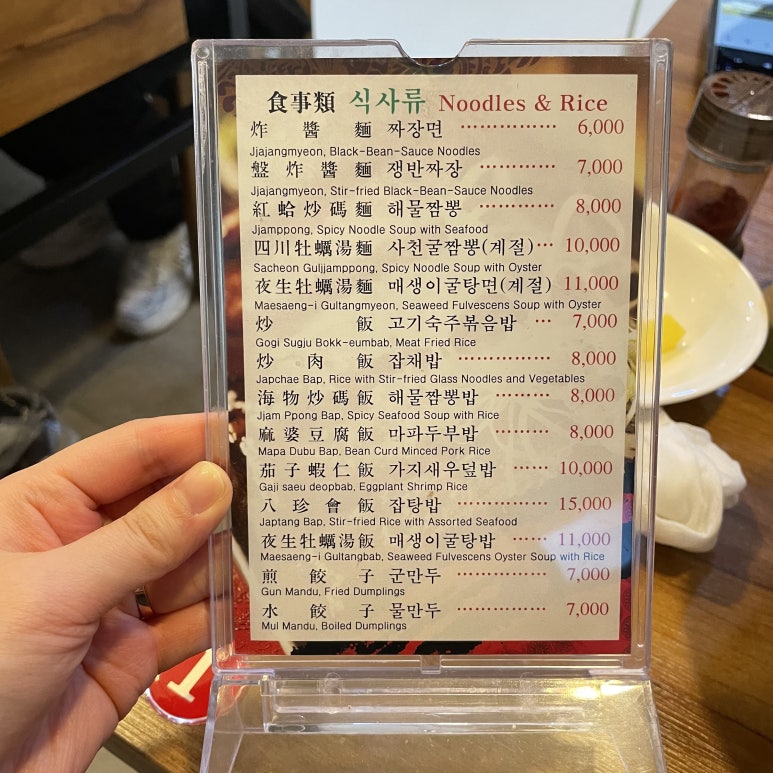 食事類 식사류 Noodles & Rice
炸醬麵 짜장면 ················ 6,000
Jjajangmyeon, Black-Bean-Sauce Noodles
盤炸醬麵 쟁반짜장 ············ 7,000
Jjajangmyeon, Stir-fried Black-Bean-Sauce Noodles
紅蛤炒碼麵 해물짬뽕 ············ 8,000
Jjamppong, Spicy Noodle Soup with Seafood
四川牡蠣湯麵 사천굴짬뽕(계절)··· 10,000
Sacheon Guljjamppong, Spicy Noodle Soup with Oyster
夜生牡蠣湯麵 매생이굴탕면(계절) 11,000
Maesaeng-i Gultangmyeon, Seaweed Fulvescens Soup with Oyster
炒飯 고기숙주볶음밥 ··· 7,000
Gogi Sugju Bokk-eumbab, Meat Fried Rice
炒肉飯 잡채밥 ··············· 8,000
Japchae Bap, Rice with Stir-fried Glass Noodles and Vegetables
海物炒碼飯 해물짬뽕밥 ········· 8,000
Jjam Ppong Bap, Spicy Seafood Soup with Rice
麻婆豆腐飯 마파두부밥 ········· 8,000
Mapa Dubu Bap, Bean Curd Minced Pork Rice
茄子蝦仁飯 가지새우덮밥 ······ 10,000
Gaji saeu deopbab, Eggplant Shrimp Rice
八珍會飯 잡탕밥 ··············· 15,000
Japtang Bap, Stir-fried Rice with Assorted Seafood
夜生牡蠣湯飯 매생이굴탕밥 ······ 11,000
Maesaeng-i Gultangbab, Seaweed Fulvescens Oyster Soup with Rice
煎餃子 군만두 ··············· 7,000
Gun Mandu, Fried Dumplings
水餃子 물만두 ··············· 7,000
Mul Mandu, Boiled Dumplings